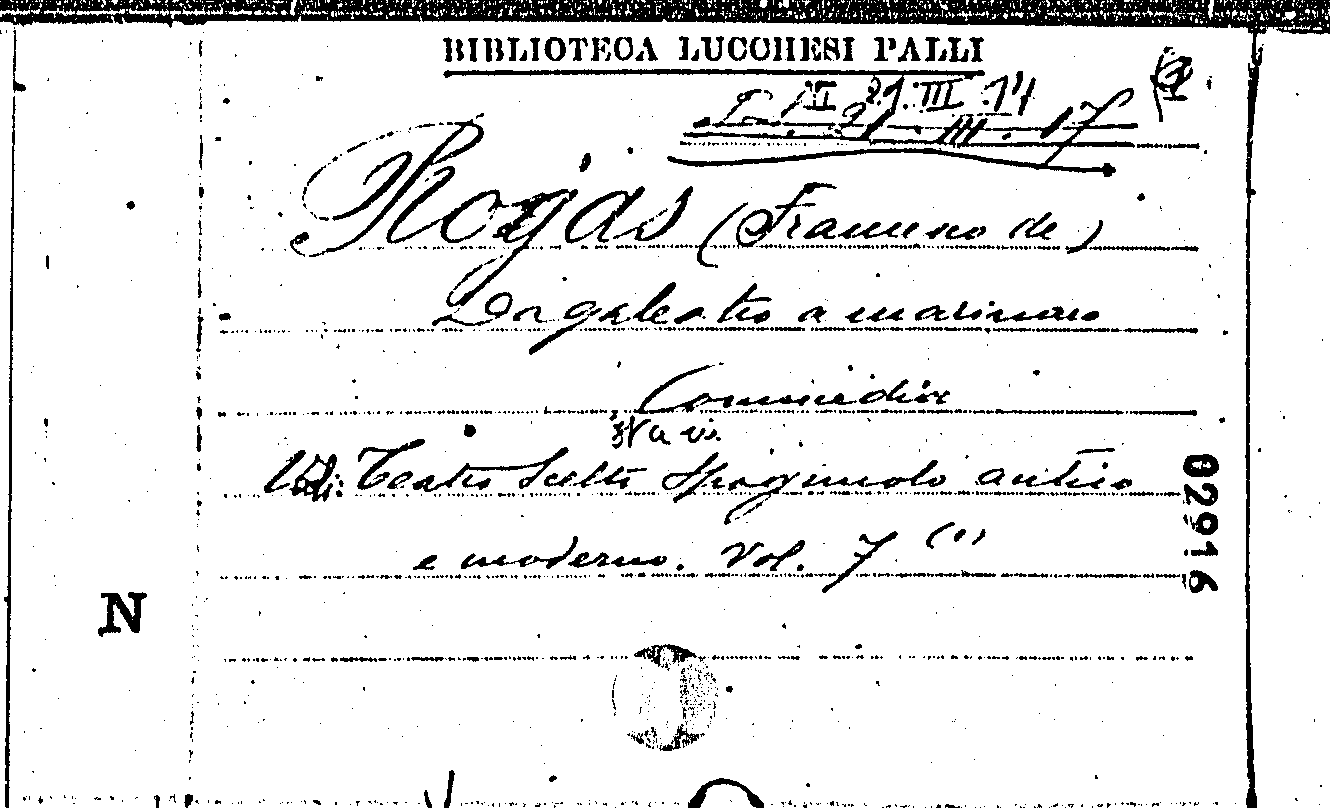 BIBLIOTECA LUCCHESI PALLI
VI 21.III.14
L. I. 21. III. 17
Rojas (Francesco de)
Da galeotto a marinaro
Commedia
Vedi: Teatro Scelto Spagnuolo antico
e moderno. Vol. 7 (1)
02916
N